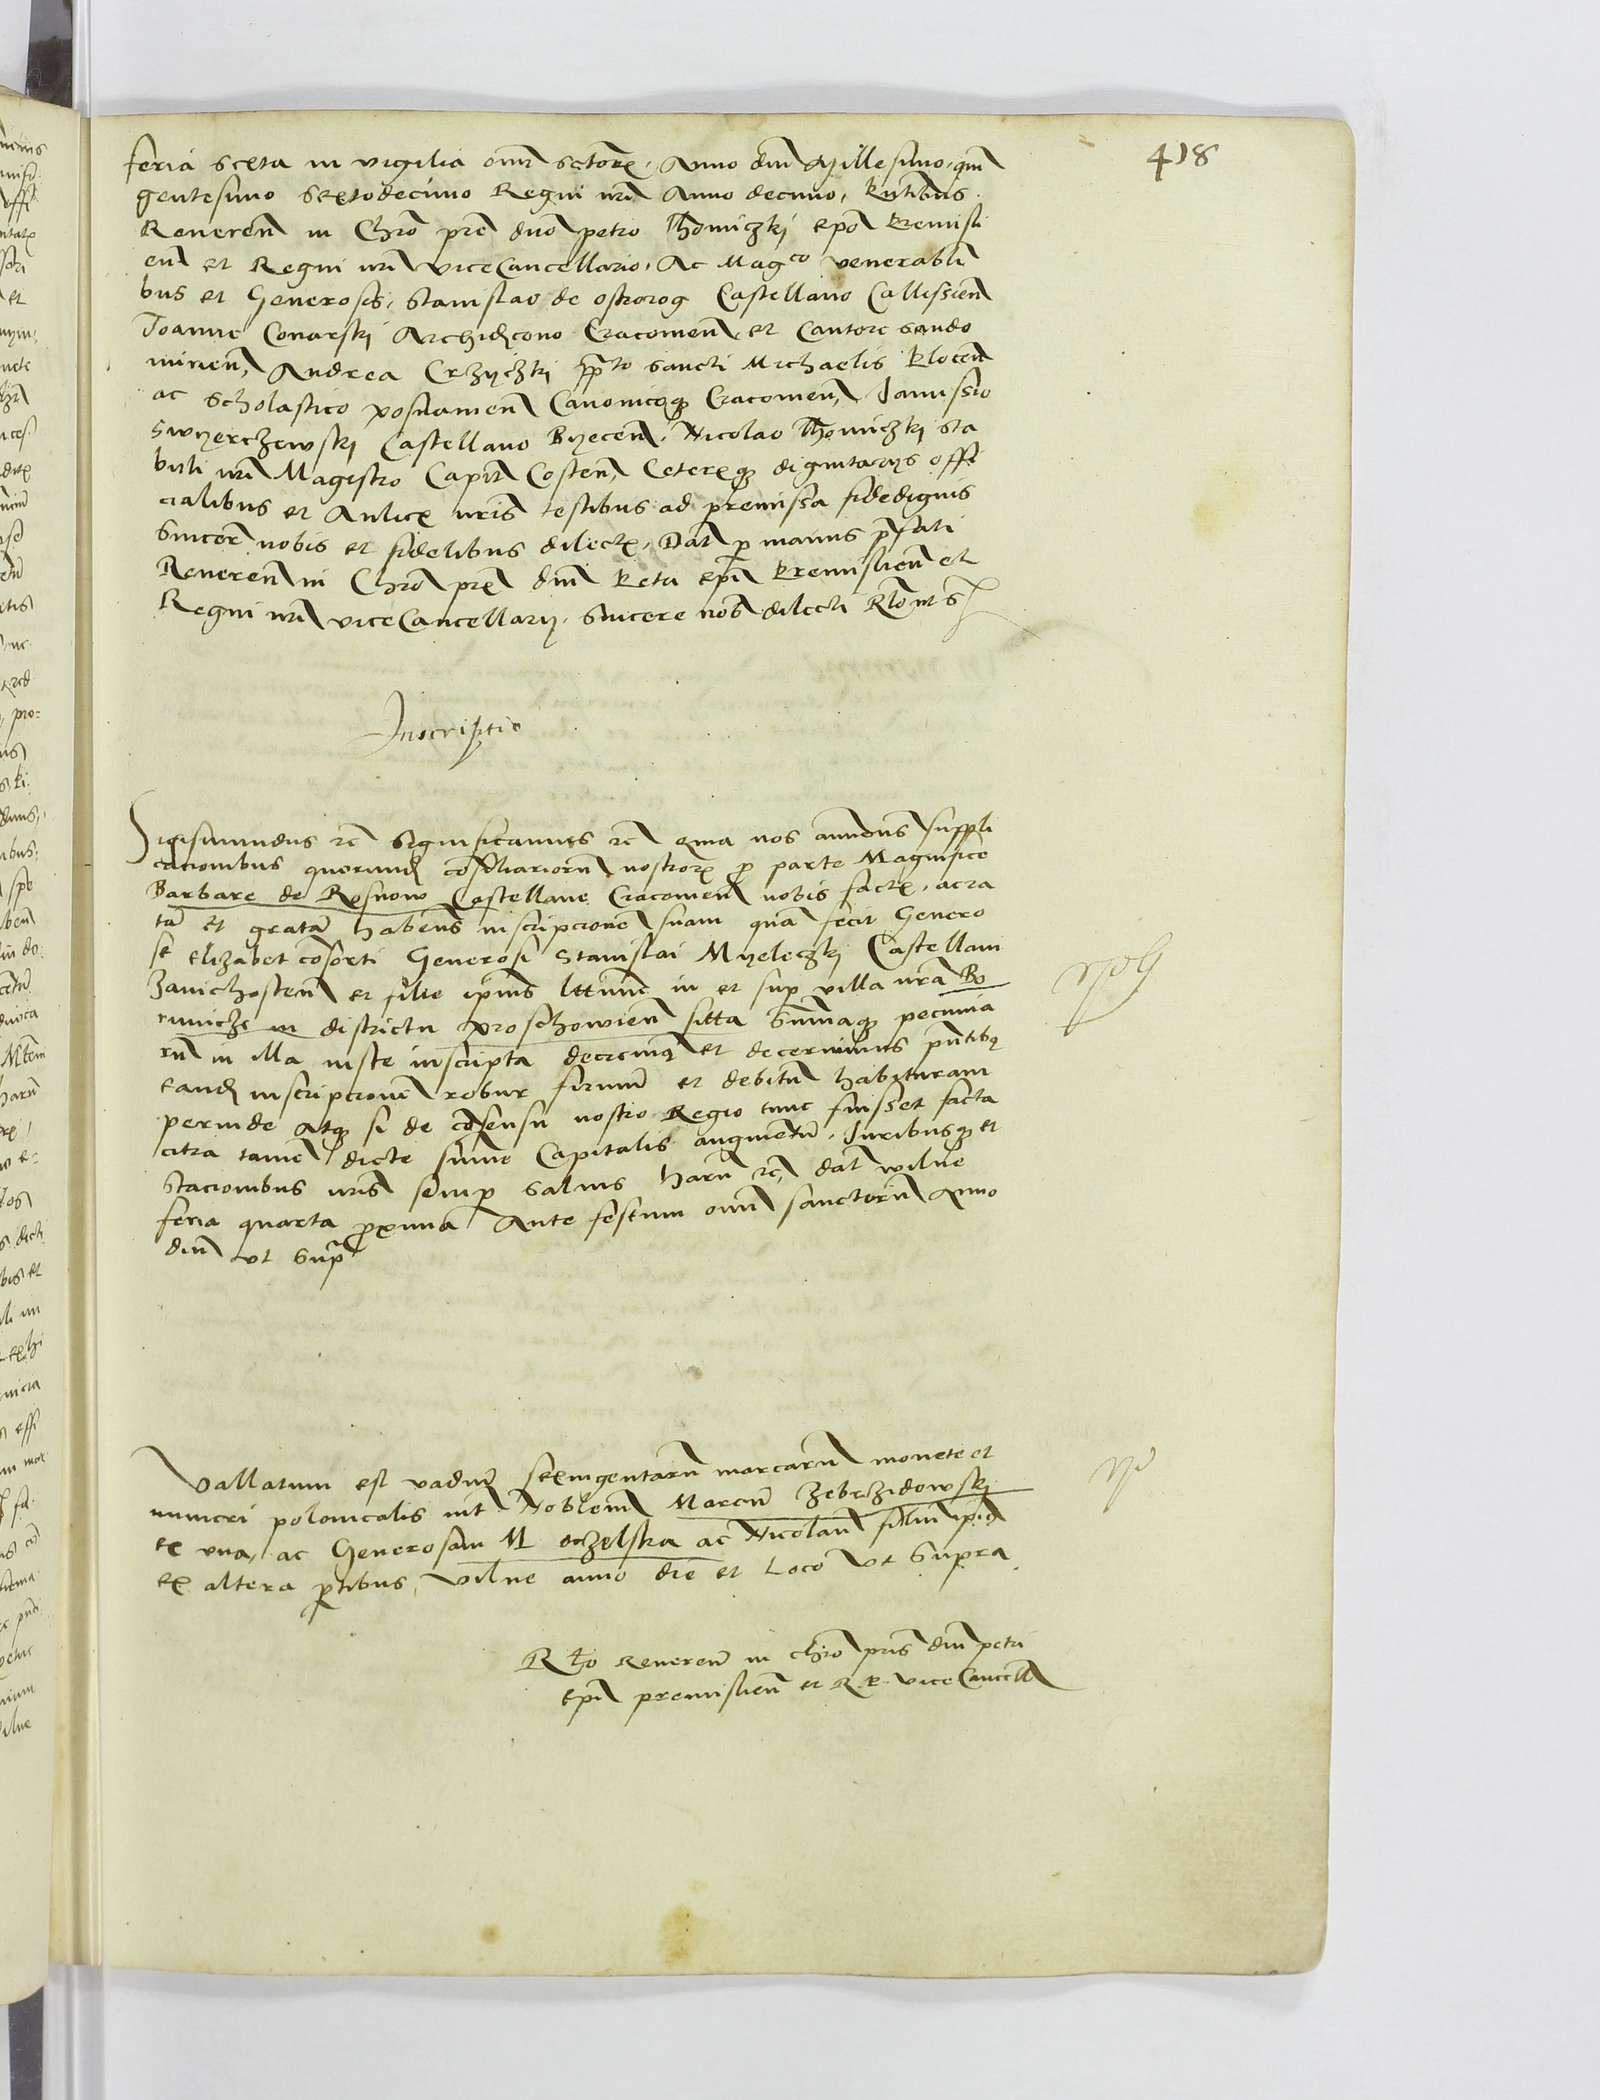 418
feria sexta in vigilia oim sctorx, Anno dni Millesimo, quin
gentesimo sextodecimo Regni nri Anno decimo, pntibus
Reveren in Chro pre dno petro Thomiczkj epo premisli
en et Regni nri viceCancellario, Ac Magco venerabli
bus et Generosis, Stanislao de ostrorog Castellano Callissien
Joanne Conarskj Archidcono Cracovien et Cantore sando
mirien, Andrea Crzyczkj ppto sancti Michaelis plocen
ac scholastico posnanien Canonicoq Cracovien, Janussio
Swyerczewskj Castellano Byecen, Nicolao Thomiczkj sta
buli nri Magistro Capit Costen, Ceterxq dignitarijs offi
cialibus et Aulicx nris testibus ad premissa fidedignis
sincer nobis et fidelibus dilectx, Dat p manus pfati
Reveren in Chro prx dni petri epi premislien et
Regni nri viceCancellarij, sincere nob dilecti Rlo ut s
Inscriptio
Sigismundus rc Significamus rc qma nos annuens suppli
cationibus quorund cosiliariorum nostrorx p parte Magnifice
Barbare de Rosnow Castellane Cracovien nobis factx, ac ra
ta et grata habens inscripcione suam qua fecit Genero
se elizabet cosorti Generosi Stanislai Myeleczkj Castellani
Zavichosten et filie ipius lttime in et sup villa nra Bo
runicze in districtu proschovien sitta sumaq pecunia
ru in illa juste inscripta decrevimus et decernimus pntibq
eand inscripcione robur firmu et debitu habituram
perinde atq si de cosensu nostro Regio tunc fuisset facta
citra tamen dicte sume Capitalis augmentu, Juribusq et
stacionibus nris semp salvis haru rc, dat wilne
feria quarta proxima Ante festum oim sanctoru Anno
dni ut supr
Vallatum est vadiu sexingentaru marcaru monete et
numeri polonicalis int Noblem Marcu Zebrzidowskj
ex una, ac Generosam M ... ac Nicolau filiu ipius
ex altera ptibus, wilne anno die et Loco ut supra
R lto Reveren in chro pris dni petri
Epi premislien et R. P. viceCancell